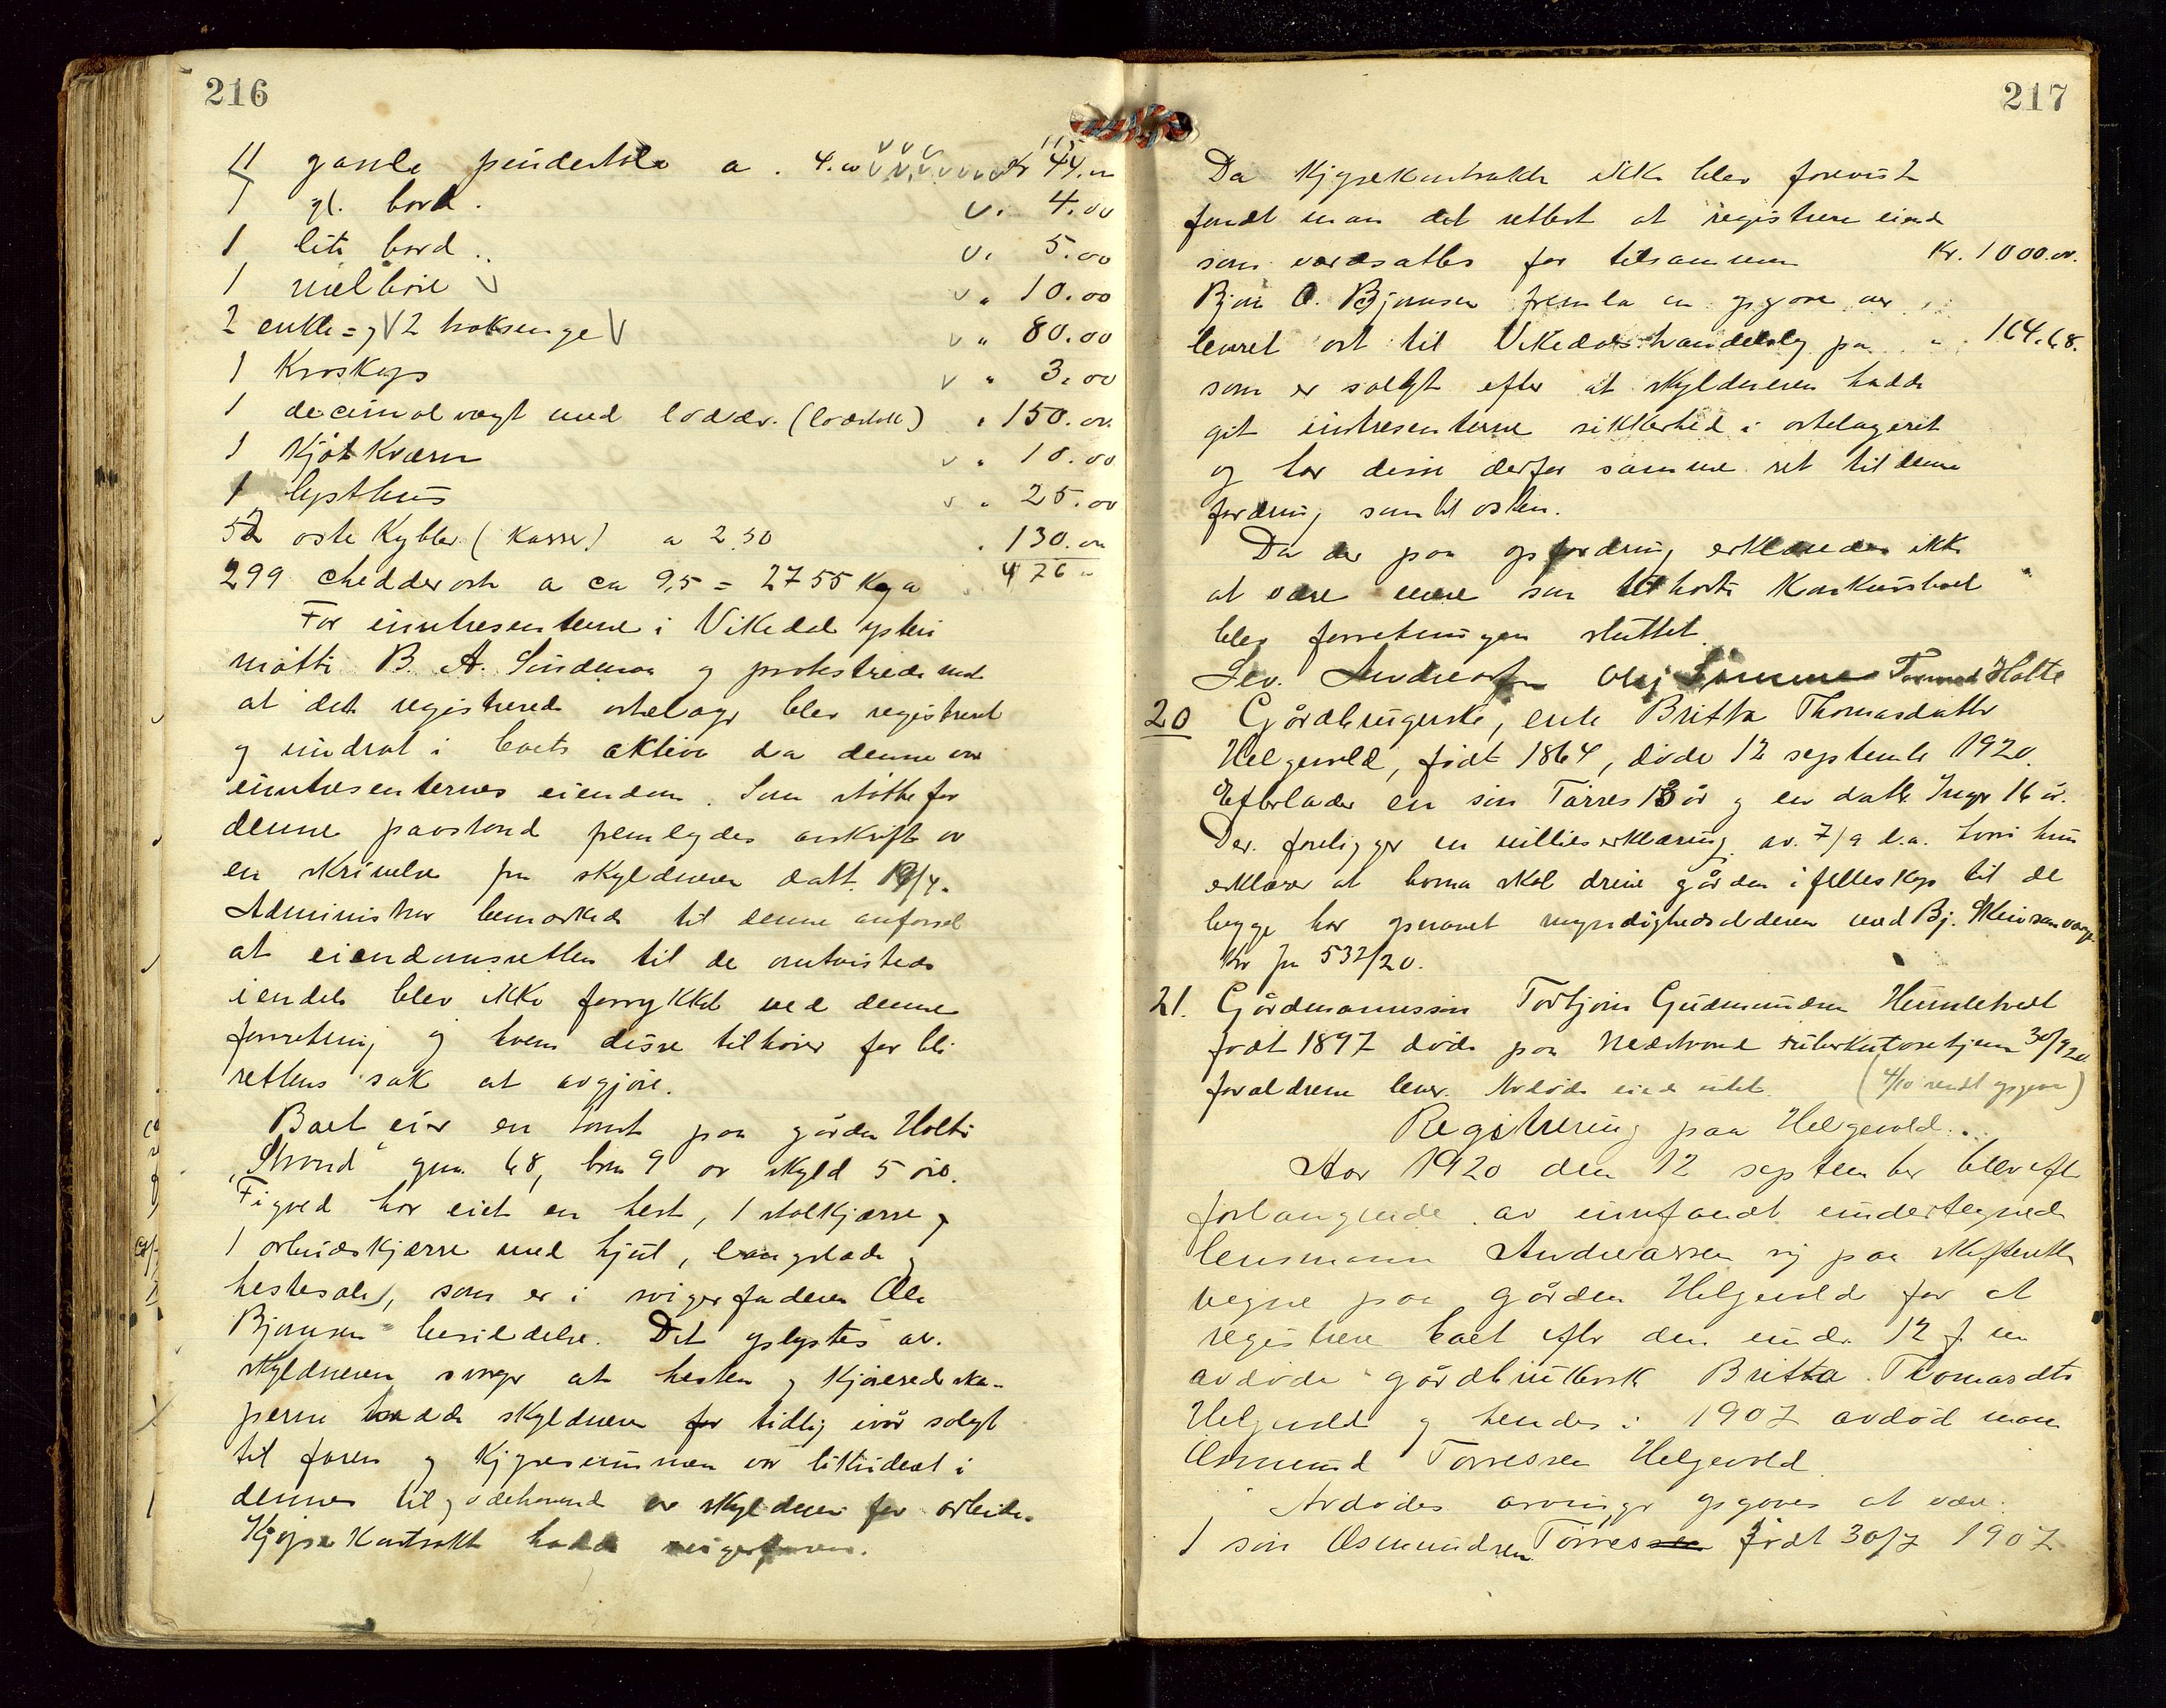 216
11 gamle pindestole a . 4.00 kr 44.00
1 gl. bord . 4.00
1 lite bord .. 5.00
1 melbøie " 10.00
2 enkle = og 2 traksenge " 80.00
1 Kroskaps " 3.00
1 decimalvægt med lodder. (lodstok) " 150.00
1 Kjøtkværn " 10.00
1 lysthus " 25.00
52 oste Kybber (Kasser) a 2.50 " 130.00
299 chedderost a ca 9,5 = 2755 Kg a 476 "
For interessenterne i Vikedal ysteri
møtte B. A. Sindemoa og protesterede mot
at det registrerede ostelager blev registreret
og indrat i boets aktiva da denne var
interessenternes eiendom. Som støtte for
denne paastand fremlagdes avskrift av
en skrivelse fra skyldneren datt. 19/4.
Administrator bemærkede til denne anførsel
at eiendomsretten til de omtvistede
iendele blev ikke forrykket ved denne
forretning og hvem disse tilhører for bli
rettens sak at avgjøre.
Boet eier en tomt paa gården Holte
"Strand" gnr. 68, bnr 9 av skyld 5 øre.
Figved har eiet en hest, 1 stolkjærre og
1 arbeidskjærre med hjul, langslade og
hestesale, som er i svigerfaderen Ole
Bjørnsen besiddelse. Det oplystes av
skyldneren svoger at hesten og Kjøreredska-
perne hadde skyldneren for tidlig ivår solgt
til faren og Kjøpesummen var likvideret i
dennes tilgodehavende av skyldneren for arbeide.
Kjøpe Kontrakt hadde svigerfaren.
217
Da Kjøpekontrakten ikke blev forevist
fandt man det rettest at registrere eiend
som værdsattes for tilsammen Kr. 1000.00.
Bjørn O. Bjørnsen fremla en opgave over
levret ost til Vikedals handelslag paa " 164.68.
som er solgt efter at skyldneren hadde
git interessenterne sikkerhed i ostelageret
og har disse derfor samme ret til denne
fordring som til osten.
Da der paa opfordring erklæredes ikke
at være mere som tilhørte Konkursboet
blev forretningen sluttet.
Sev. Andreassen Tormod Holte
20 Gårdbrugerske, enke Britta Thomasdatter
Helgevold, født 1864, døde 12 september 1920.
Efterlader en søn Tørres 13 år og en datter Inger 16 år.
Der foreligger en villieserklæring av 7/9 d.a. hvori hun
erklærer at barna skal drive gården i fellesskap til de
begge har opnaaet myndighedsalderen med Bj. som verge.
Skr jnr 532/20.
21. Gårdmannssøn Torbjørn Gudmundsen Humletvedt
født 1897 døde paa Nedstrand tuberkulosehjem 30/9 20
foraldrene lever. Avdøde eiede intet. (4/10 sendt opgave)
Registrering paa Helgevold...
Aar 1920 den 12 september blev efter
forlangende av innfandt undertegnede
lensmann Andreassen sig paa skifterettens
vegne paa gården Helgevold for at
registrere boet efter den under 12 f. m
avdøde gårdbrukersk Britta Thomasdtr
Helgevold og hendes i 1907 avdøde mann
Osmund Tørressen Helgevold.
Avdødes arvinger opgaves at være.
1 søn Osmundsen Tørres født 30/7 1907